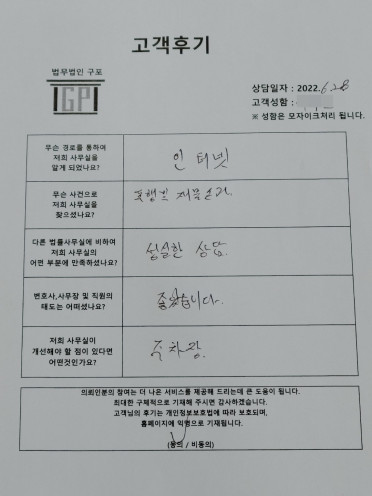 고객후기
법무법인 구포
IGPI
상담일자 : 2022. 6. 28
고객성함 :
※ 성함은 모자이크처리 됩니다.
무슨 경로를 통하여
저희 사무실을
알게 되었나요?
인터넷
무슨 사건으로
저희 사무실을
찾으셨나요?
폭행 및 재물손괴.
다른 법률사무실에 비하여
저희 사무실의
어떤 부분에 만족하셨나요?
성실한 상담.
변호사,사무장 및 직원의
태도는 어떠셨나요?
좋았습니다.
저희 사무실이
개선해야 할 점이 있다면
어떤것인가요?
주차장.
의뢰인분의 참여는 더 나은 서비스를 제공해 드리는데 큰 도움이 됩니다.
최대한 구체적으로 기재해 주시면 감사하겠습니다.
고객님의 후기는 개인정보보호법에 따라 보호되며,
홈페이지에 익명으로 기재됩니다.
(동의 / 비동의)